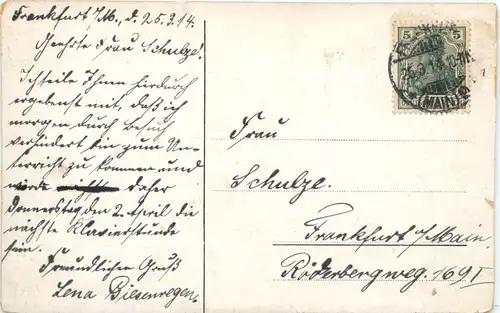 Frankfurt a/M., d. 25.3.14.
Geehrte Frau Schulze!
Ich teile Ihnen hierdurch
ergebenst mit, daß ich
morgen durch Besuch
verhindert bin zum Un-
terricht zu kommen und
würde nicht daher
Donnerstag den 2. April die
nächste Klavierstunde
sein.
Freundlichen Gruß
Lena Biesenregen.
5 5
(MAIN)
Frau
Schulze.
Frankfurt a/Main.
Röderbergweg. 169 I